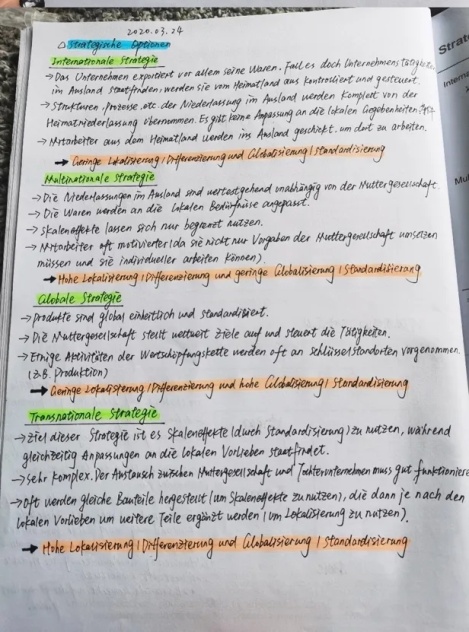 2020.03.24
△ Strategische Optionen
Internationale Strategie
→ Das Unternehmen exportiert vor allem seine Waren. Falls es doch Unternehmenstätigkeiten
im Ausland stattfinden, werden sie vom Heimatland aus kontrolliert und gesteuert.
→ Strukturen, Prozesse, etc der Niederlassung im Ausland werden komplett von der
Heimatniederlassung übernommen. Es gibt keine Anpassung an die lokalen Gegebenheiten
→ Mitarbeiter aus dem Heimatland werden ins Ausland geschickt, um dort zu arbeiten.
→ Geringe Lokalisierung / Differenzierung und Globalisierung / Standardisierung
Multinationale Strategie
→ Die Niederlassungen im Ausland sind weitestgehend unabhängig von der Muttergesellschaft.
→ Die Waren werden an die lokalen Bedürfnisse angepasst.
→ Skaleneffekte lassen sich nur begrenzt nutzen.
→ Mitarbeiter oft motivierter (da sie nicht nur Vorgaben der Muttergesellschaft umsetzen
müssen und sie individueller arbeiten können).
→ Hohe Lokalisierung / Differenzierung und geringe Globalisierung / Standardisierung
Globale Strategie
→ Produkte sind global einheitlich und standardisiert.
→ Die Muttergesellschaft stellt weltweit Ziele auf und steuert die Tätigkeiten.
→ Einige Aktivitäten der Wertschöpfungskette werden oft an Schlüsselstandorten vorgenommen.
(z.B. Produktion)
→ Geringe Lokalisierung / Differenzierung und hohe Globalisierung / Standardisierung
Transnationale Strategie
→ Ziel dieser Strategie ist es Skaleneffekte (durch Standardisierung) zu nutzen, während
gleichzeitig Anpassungen an die lokalen Vorlieben stattfindet.
→ Sehr komplex. Der Austausch zwischen Muttergesellschaft und Tochterunternehmen muss gut funktioniere
→ Oft werden gleiche Bauteile hergestellt (um Skaleneffekte zu nutzen), die dann je nach den
lokalen Vorlieben um weitere Teile ergänzt werden (um Lokalisierung zu nutzen).
→ Hohe Lokalisierung / Differenzierung und Globalisierung / Standardisierung
Strate
Intern
Mul